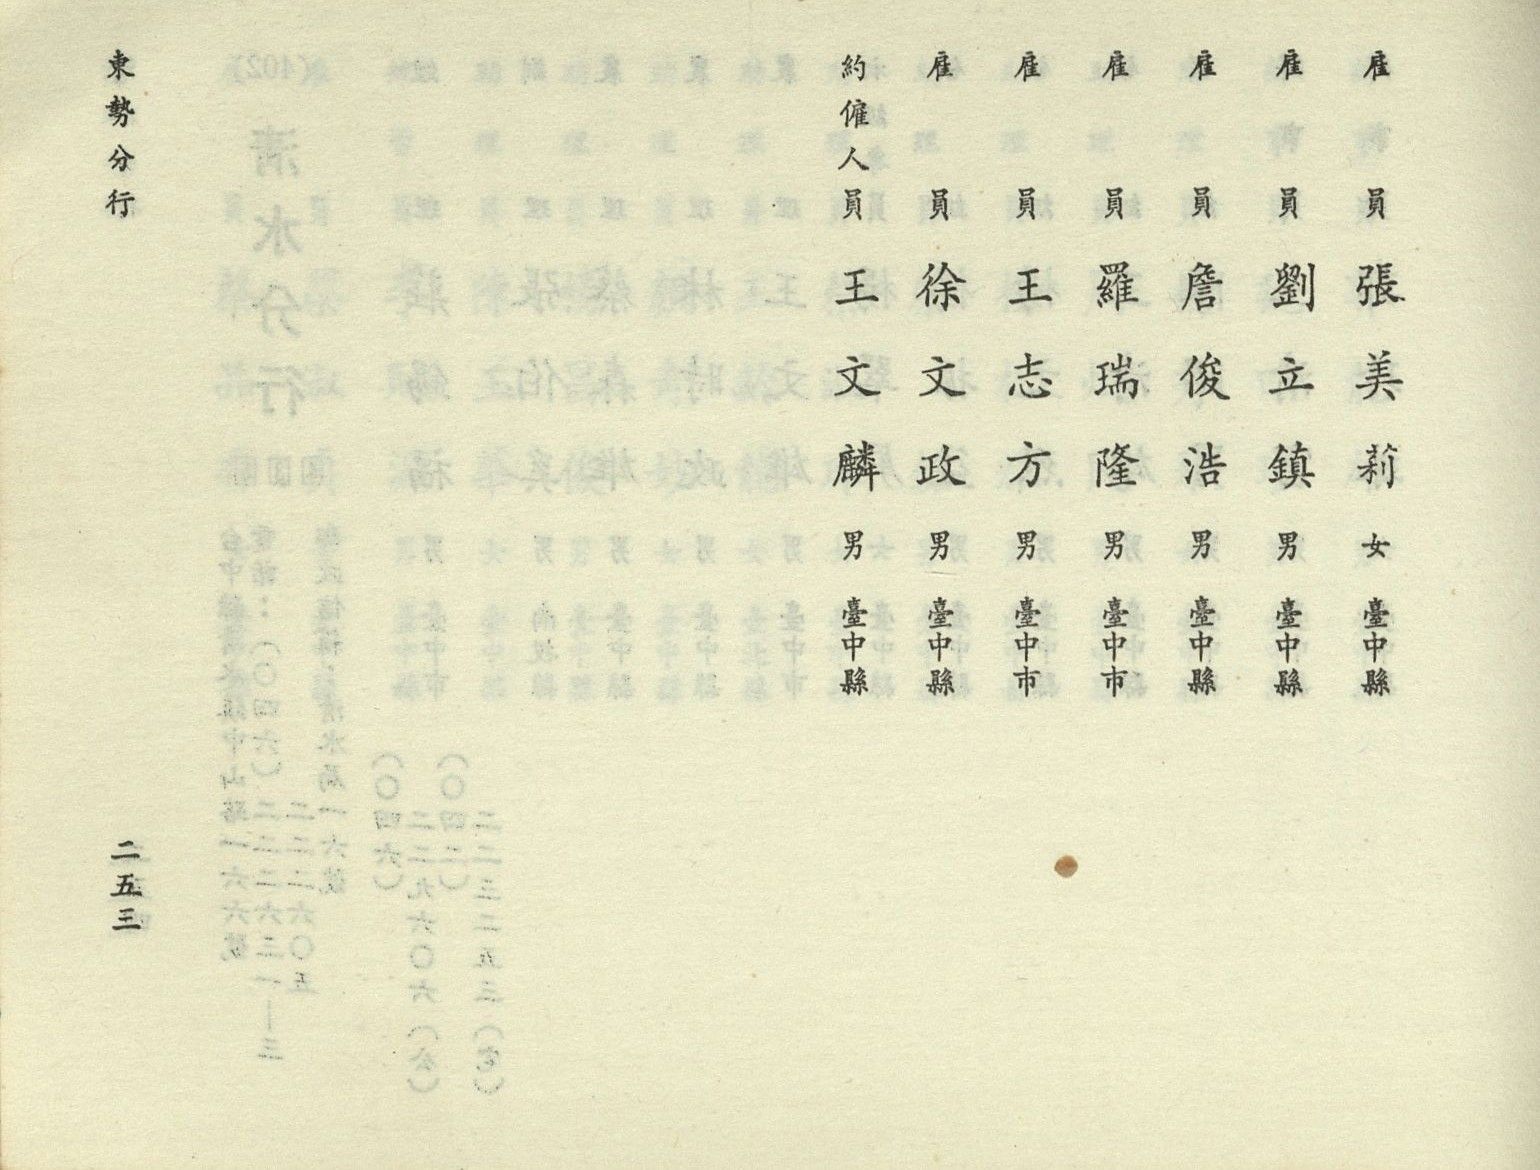 雇員 張美莉 女 臺中縣
雇員 劉立鎮 男 臺中縣
雇員 詹俊浩 男 臺中縣
雇員 羅瑞隆 男 臺中市
雇員 王志方 男 臺中市
雇員 徐文政 男 臺中縣
約僱人員 王文麟 男 臺中縣
東勢分行
二五三